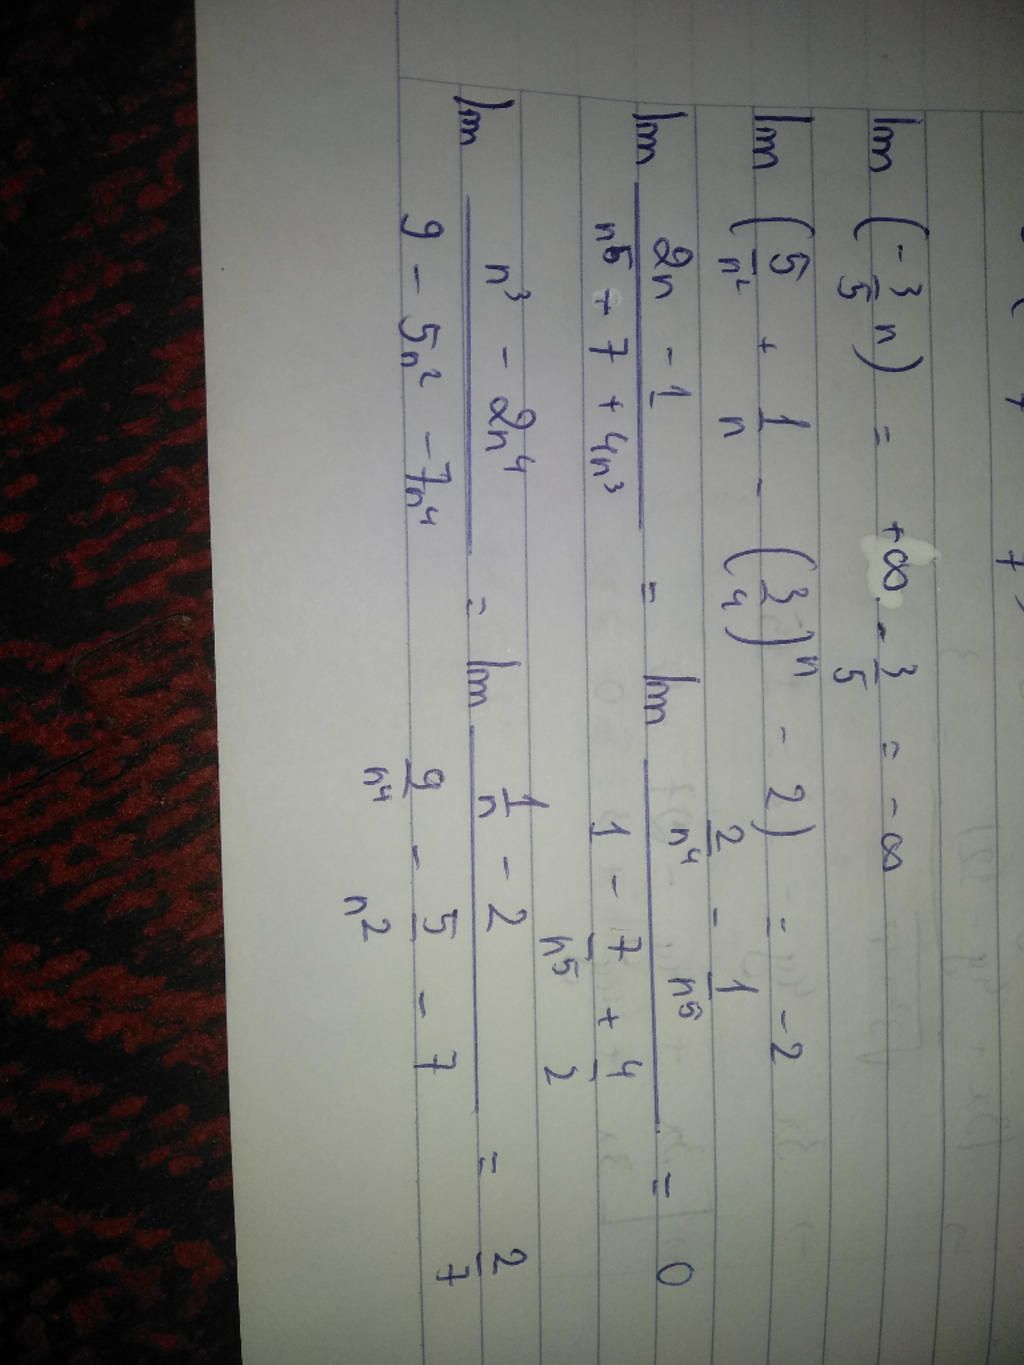 lim (-3/5 n) = +∞ · -3/5 = -∞
lim (5/n² + 1/n - (3/4)ⁿ - 2) = -2
lim (2n - 1)/(n⁵ + 7 + 4n³) = lim (2/n⁴ - 1/n⁵)/(1 - 7/n⁵ + 4/2) = 0
lim (n³ - 2n⁴)/(9 - 5n² - 7n⁴) = lim (1/n - 2)/(9/n⁴ - 5/n² - 7) = 2/7